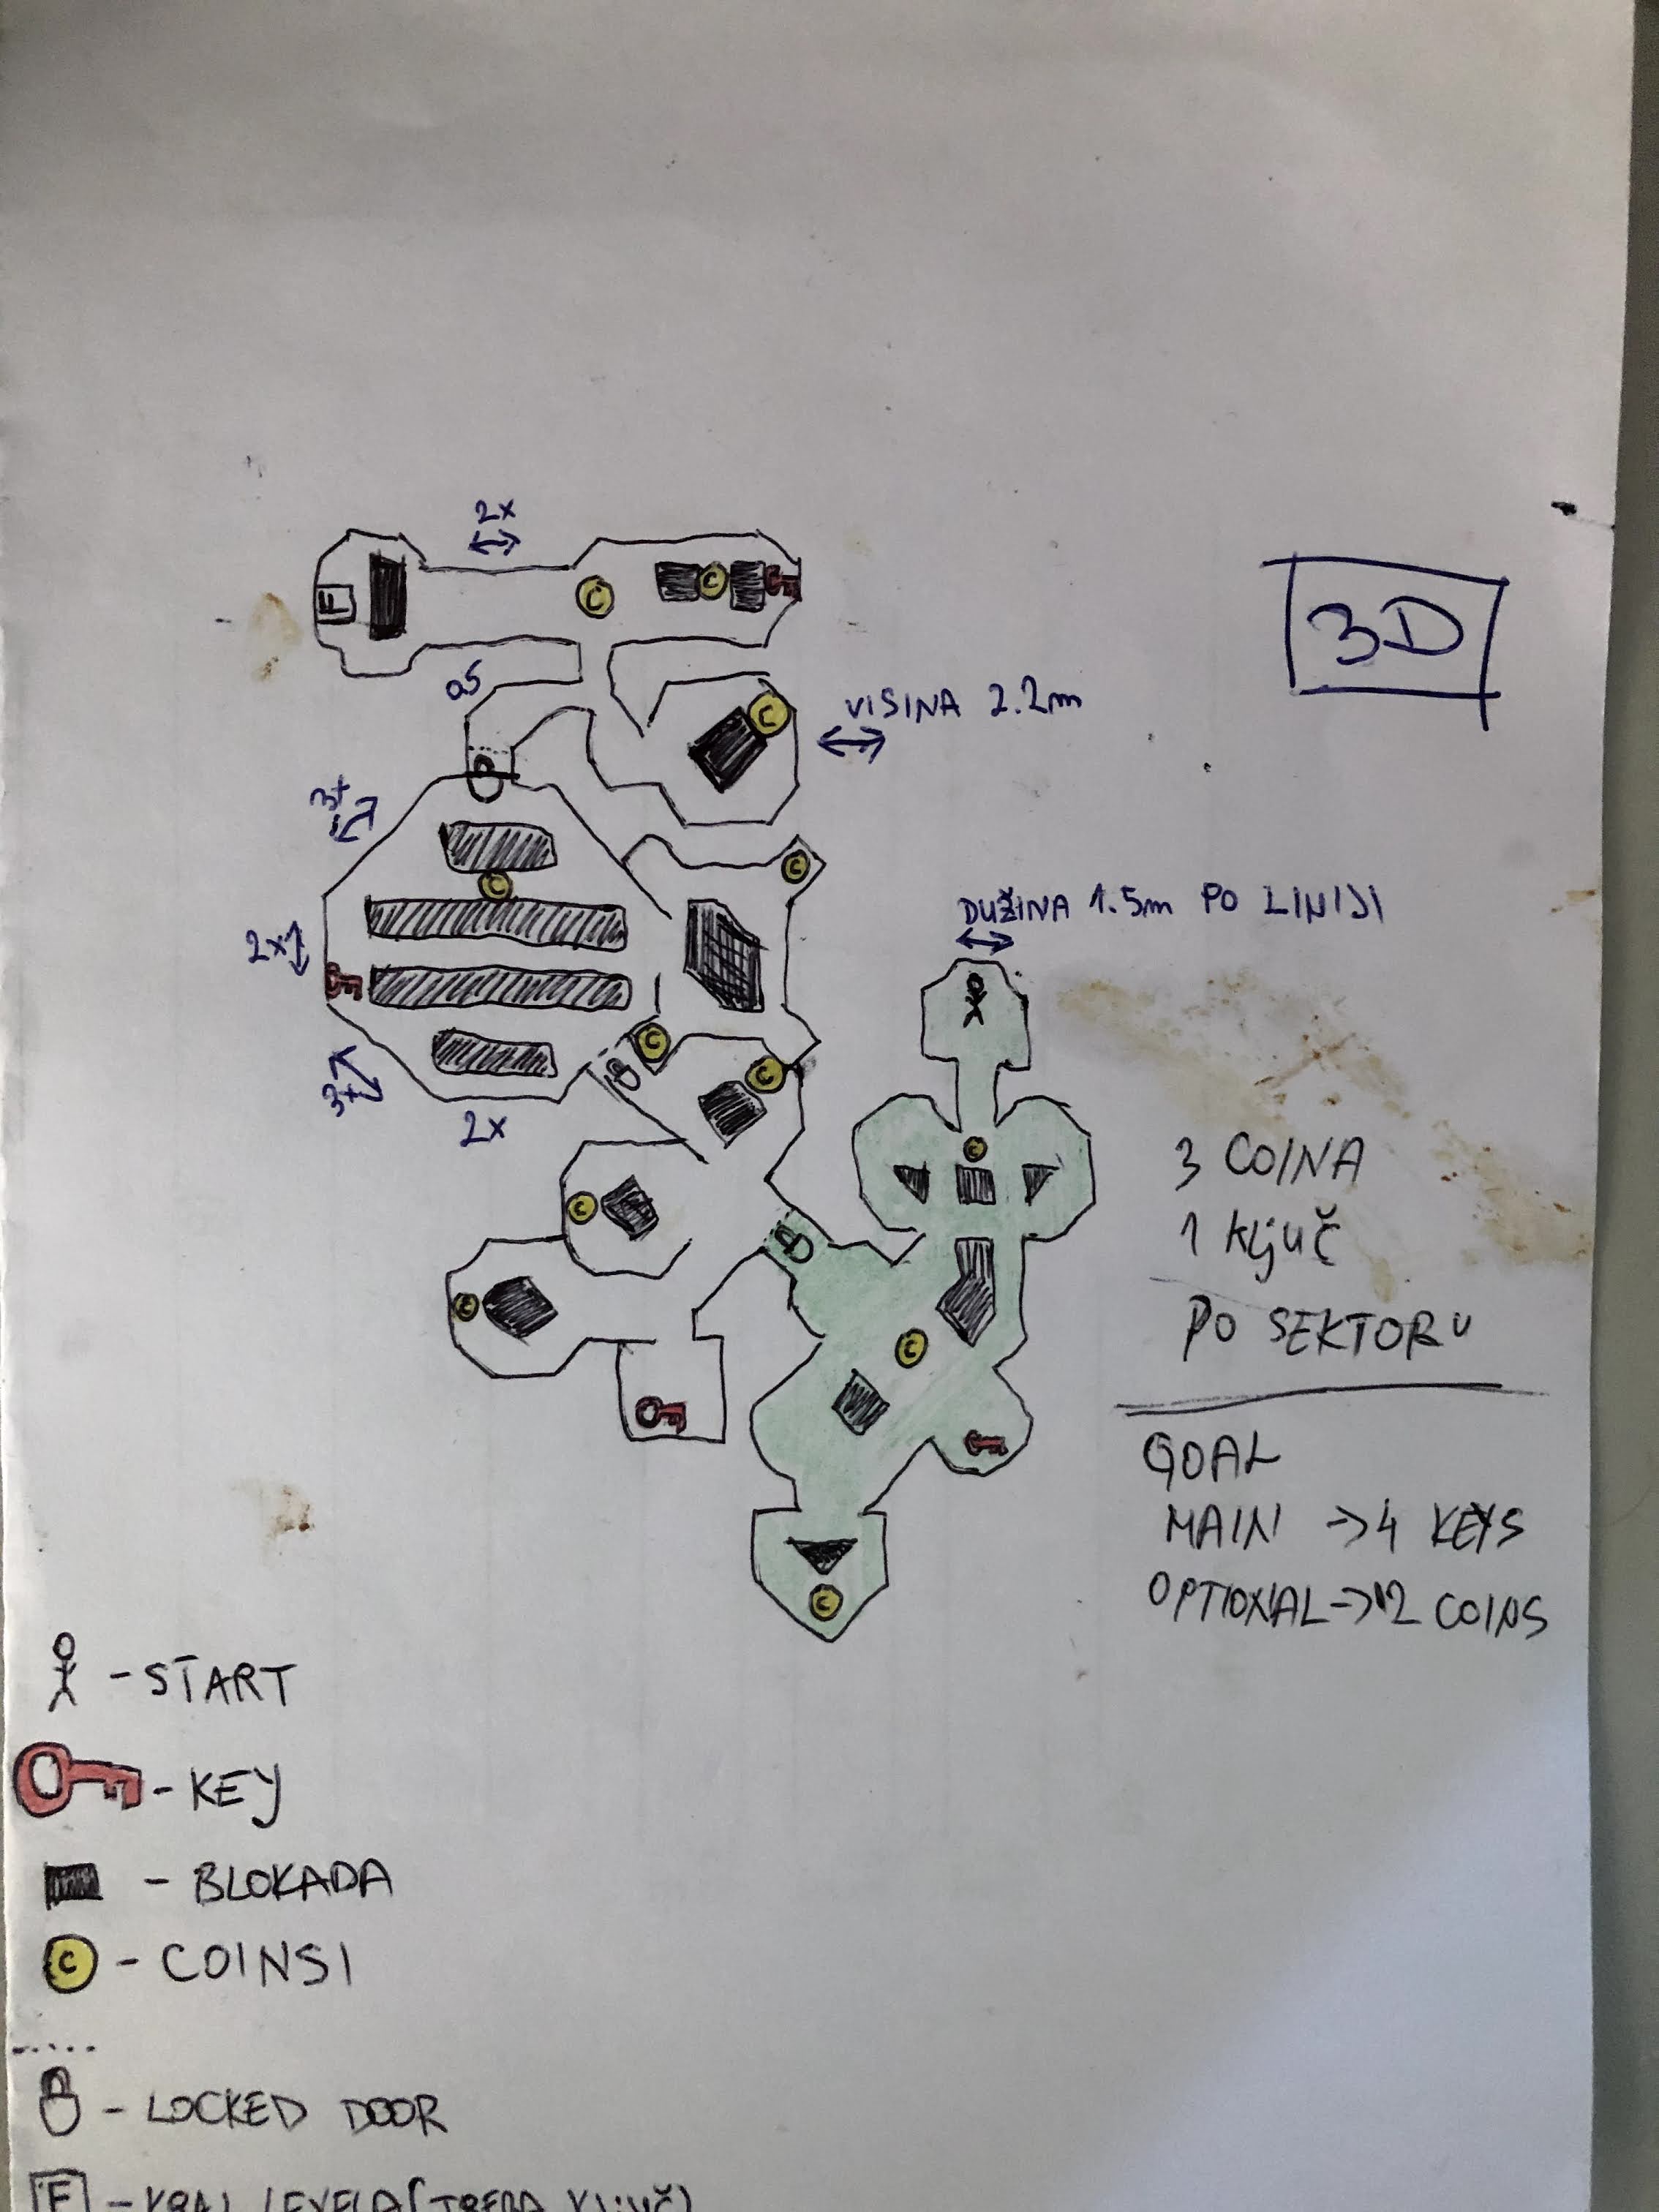 2x
F
C
C
0.5
C
VISINA 2.2m
3D
3+
C
C
DUŽINA 1.5m PO LINIJI
2x
C
C
3+
2x
C
3 COINA
1 KLJUČ
PO SEKTORU
C
C
C
C
GOAL
MAIN -> 4 KEYS
OPTIONAL -> 12 COINS
- START
- KEY
- BLOKADA
C - COINSI
- LOCKED DOOR
F - KRAJ LEVELA (TREBA KLJUČ)